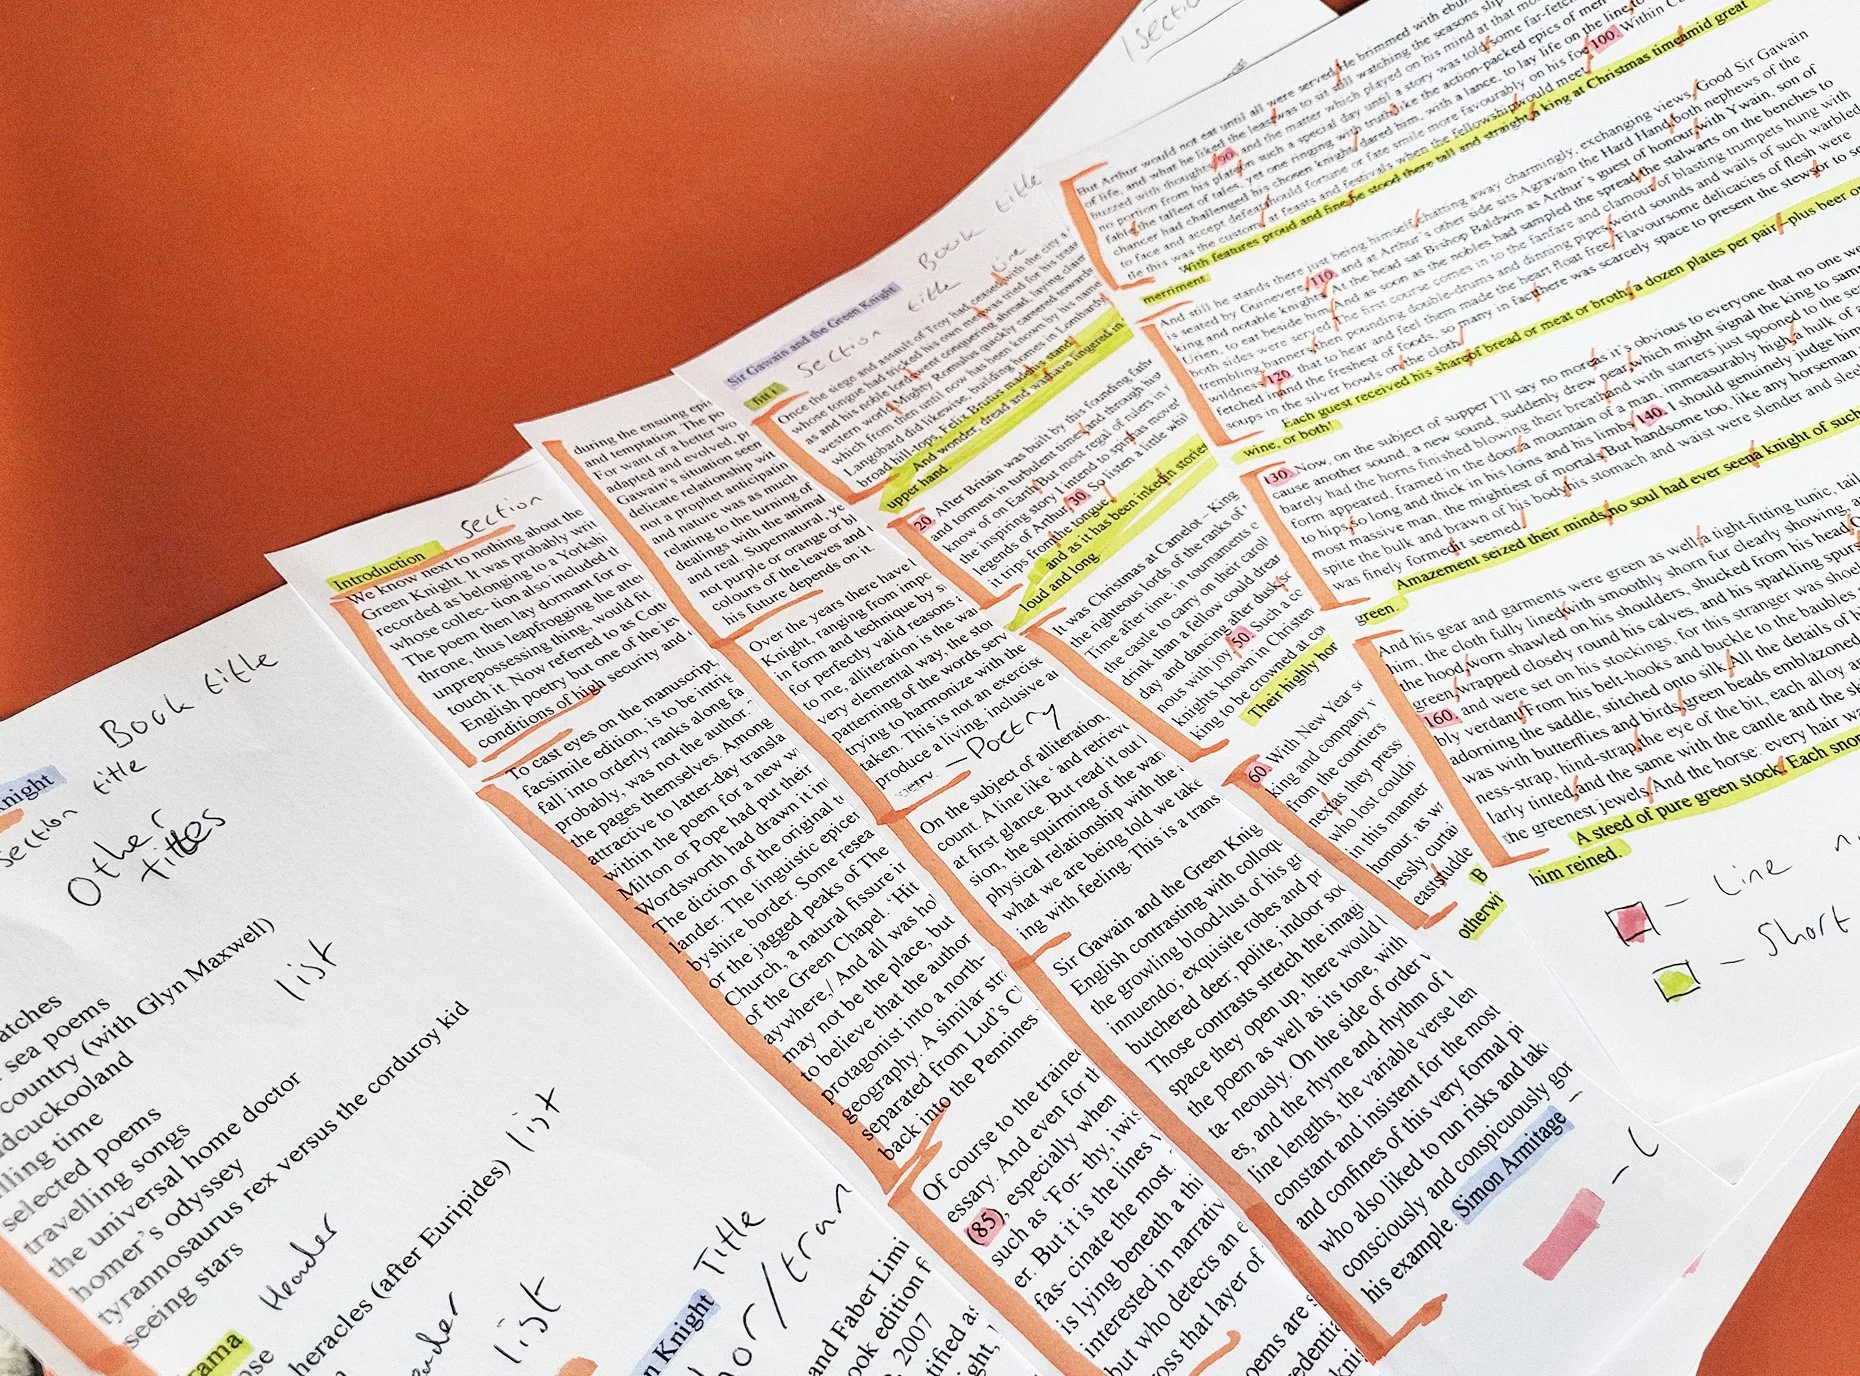 Book title
night
section title
Other
titles
atches
sea poems
country (with Glyn Maxwell)
list
dcuckooland
lling time
selected poems
travelling songs
the universal home doctor
homer's odyssey
tyrannosaurus rex versus the corduroy kid
seeing stars
Header
rama
heracles (after Euripides) list
list
Title
n Knight
and Faber Limi
ook edition f
2007
Introduction section
We know next to nothing about the
Green Knight. It was probably writ
recorded as belonging to a Yorkshi
whose collec- tion also included th
The poem then lay dormant for ov
throne, thus leapfrogging the atten
unprepossessing thing, would fit
touch it. Now referred to as Cott
English poetry but one of the jew
conditions of high security and
To cast eyes on the manuscript,
facsimile edition, is to be intrig
fall into orderly ranks along fa
probably, was not the author.
the pages themselves. Among
attractive to latter-day transla
within the poem for a new w
Milton or Pope had put their
Wordsworth had drawn it in
The diction of the original t
lander. The linguistic epicen
byshire border. Some resea
or the jagged peaks of The
Church, a natural fissure i
of the Green Chapel. 'Hit
aywhere,/ And all was hol
may not be the place, but
to believe that the author
protagonist into a north-
geography. A similar str
separated from Lud's C
back into the Pennines
during the ensuing epis
and temptation. The po
For want of a better wo
adapted and evolved, pr
Gawain's situation seem
delicate relationship wit
not a prophet anticipatin
and nature was as much
relating to the turning of
dealings with the animal
and real. Supernatural, ye
not purple or orange or bl
colours of the leaves and
his future depends on it.
Over the years there have
Knight, ranging from impo
in form and technique by s
for perfectly valid reasons
to me, alliteration is the wa
very elemental way, the stor
patterning of the words serv
trying to harmonize with the
taken. This is not an exercise
produce a living, inclusive an
Poetry
On the subject of alliteration,
count. A line like ' and retrieve
at first glance. But read it out l
sion, the squirming of the war
physical relationship with the
what we are being told we take
ing with feeling. This is a trans
Of course to the trained
essary. And even for th
(85), especially when
such as 'For- thy, iwis
er. But it is the lines w
fas- cinate the most.
is lying beneath a thi
interested in narrativ
but who detects an e
Sir Gawain and the Green Knig
English contrasting with colloqu
the growling blood-lust of his gr
innuendo, exquisite robes and pr
butchered deer, polite, indoor soc
Those contrasts stretch the imagi
space they open up, there would
the poem as well as its tone, with
ta- neously. On the side of order w
es, and the rhyme and rhythm of t
line lengths, the variable verse len
constant and insistent for the most
and confines of this very formal pi
who also liked to run risks and take
consciously and conspicuously gor
his example. Simon Armitage
Book title
Sir Gawain and the Green Knight
fitt i section title Line
Once the siege and assault of Troy had ceased with the city a
whose tongue had tricked his own men was tried for his trea
as and his noble lords went conquering abroad, laying claim
western world. Mighty Romulus quickly careered towards
which from then until now has been known by his name
Langobard did likewise, building homes in Lombardy
broad hill tops, Felix Brutus made his stand.
And wonder, dread and war have lingered in
upper hand.
20 After Britain was built by this founding fathe
and torment in turbulent times and through hist
know of on Earth. But most regal of rulers in
the inspiring story I intend to spin has moved
legends of Arthur. 30. So listen a little whil
it trips from the tongue,
and as it has been inked in stories
loud and long.
It was Christmas at Camelot - King
the righteous lords of the ranks of
Time after time, in tournaments o
the castle to carry on their caroll
drink than a fellow could dream
day and dancing after dusk,
nous with joy. 50. Such a co
knights known in Christen
king to be crowned at co
Their highly hon
60. With New Year s
king and company
from the courtiers
next as they press
who lost couldn'
in this manner
honour, as w
lessly curtai
otherwi
title
But Arthur would not eat until all were served. He brimmed with ebu
of life, and what he liked the least was to sit still watching the seasons slip
buzzed with thoughts 90. and the matter which played on his mind at that mo
no portion from his plate on such a special day until a story was told: some far-fetch
fable, the tallest of tales, yet one ringing with truth, like the action-packed epics of men
chancer had challenged his chosen knight, dared him, with a lance, to lay life on the line, to
to face and accept defeat should fortune or fate smile more favourably on his foe. 100. Within C
tle this was the custom, at feasts and festivals when the fellowship would meet.
With features proud and fine, he stood there tall and straight, a king at Christmas time amid great
merriment.
And still he stands there just being himself, chatting away charmingly, exchanging views. Good Sir Gawain
is seated by Guinevere, 110. and at Arthur's other side sits Agravain the Hard Hand, both nephews of the
king and notable knights. At the head sat Bishop Baldwin as Arthur's guest of honour, with Ywain, son of
Urien, to eat beside him. And as soon as the nobles had sampled the spread the stalwarts on the benches to
both sides were served. The first course comes in to the fanfare and clamour of blasting trumpets hung with
trembling banners, then pounding double-drums and dinning pipes, weird sounds and wails of such warbled
wildness 120. that to hear and feel them made the heart float free. Flavoursome delicacies of flesh were
fetched in and the freshest of foods, so many in fact there was scarcely space to present the stews or to se
soups in the silver bowls on the cloth.
Each guest received his share of bread or meat or broth; a dozen plates per pair - plus beer or
wine, or both!
130. Now, on the subject of supper I'll say no more as it's obvious to everyone that no one we
cause another sound, a new sound, suddenly drew near, which might signal the king to samp
barely had the horns finished blowing their breath and with starters just spooned to the sea
form appeared, framed in the door: a mountain of a man, immeasurably high, a hulk of a
to hips, so long and thick in his loins and his limbs 140. I should genuinely judge him
most massive man, the mightiest of mortals. But handsome too, like any horseman
spite the bulk and brawn of his body his stomach and waist were slender and sleek
was finely formed it seemed.
Amazement seized their minds, no soul had ever seen a knight of such
green.
And his gear and garments were green as well: a tight-fitting tunic, tail
him, the cloth fully lined with smoothly shorn fur clearly showing, a
the hood, worn shawled on his shoulders, shucked from his head. O
green, wrapped closely round his calves, and his sparkling spurs
160. and were set on his stockings, for this stranger was shoe
bly verdant! From his belt-hooks and buckle to the baubles
adorning the saddle, stitched onto silk. All the details of hi
was with butterflies and birds, green beads emblazoned
ness-strap, hind-strap, the eye of the bit, each alloy an
larly tinted, and the same with the cantle and the ski
the greenest jewels. And the horse: every hair was
A steed of pure green stock. Each snor
him reined.
- Line
- Short